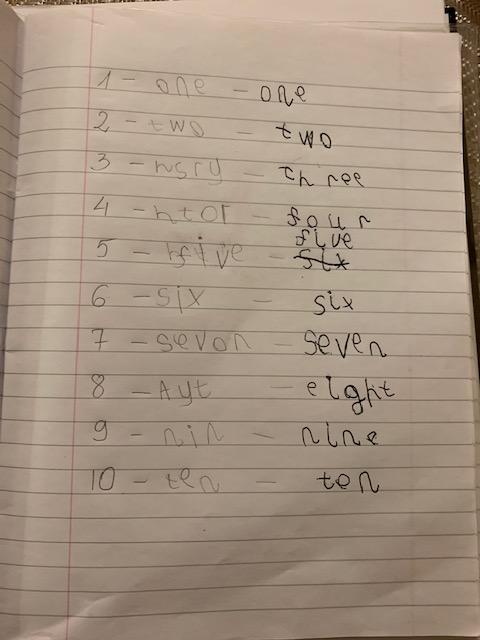 1 - one - one
2 - two - two
3 - nsry - three
4 - ntor - four
five
5 - hfive - six
6 - six - six
7 - sevon - seven
8 - Ayt - eight
9 - nin - nine
10 - ten - ten